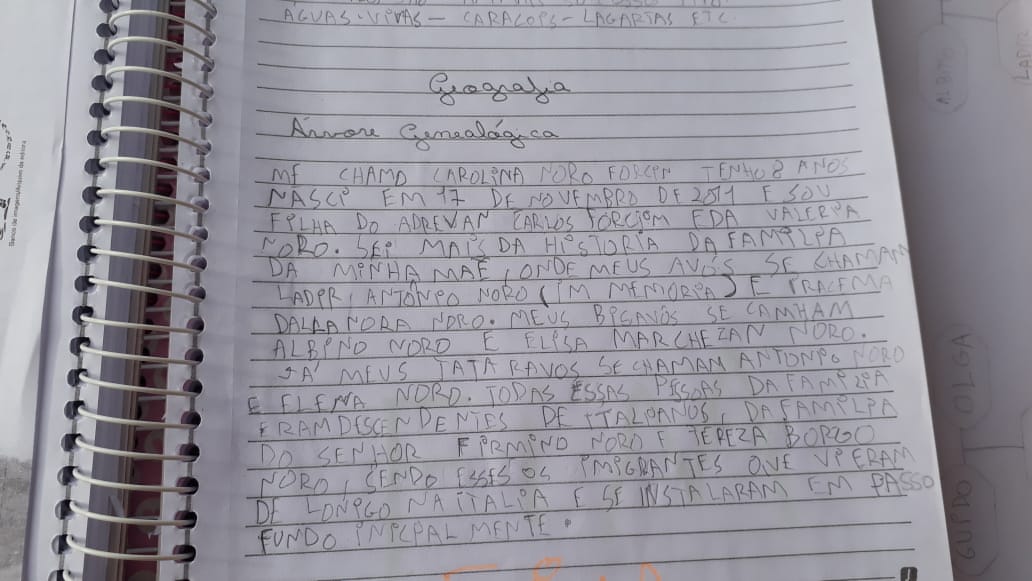 ÁGUAS-VIVAS- CARACOPS- LAGARTAS ETC.
Geografia
Árvore Genealógica
ME CHAMO CAROLINA NORO FORCIN TENHO 8 ANOS
NASCI EM 17 DE NOVEMBRO DE 2011 E SOU
FILHA DO ADREVAN CARLOS FORCIM E DA VALERIA
NORO. SEI MAIS DA HISTORIA DA FAMILIA
DA MINHA MAE, ONDE MEUS AVÓS SE CHAMAM
LADIR, ANTÔNIO NORO (IM MEMORIA) E IRACEMA
DALLANORA NORO. MEUS BIGAVÓS SE CAMHAM
ALBINO NORO E ELISA MARCHEZAN NORO.
JÁ MEUS TATARAVOS SE CHAMAM ANTONIO NORO
E ELENA NORO. TODAS ESSAS PESSAS DA FAMILIA
ERAM DESCENDENTES DE ITALIANOS, DA FAMILIA
DO SENHOR FIRMINO NORO E TEREZA BORGO
NORO, SENDO ESSES OS IMIGRANTES QUE VIERAM
DE LONIGO NA ITALIA E SE INSTALARAM EM PASSO
FUNDO INICPAL MENTE.
ALBINO
OLGA
GUIDO